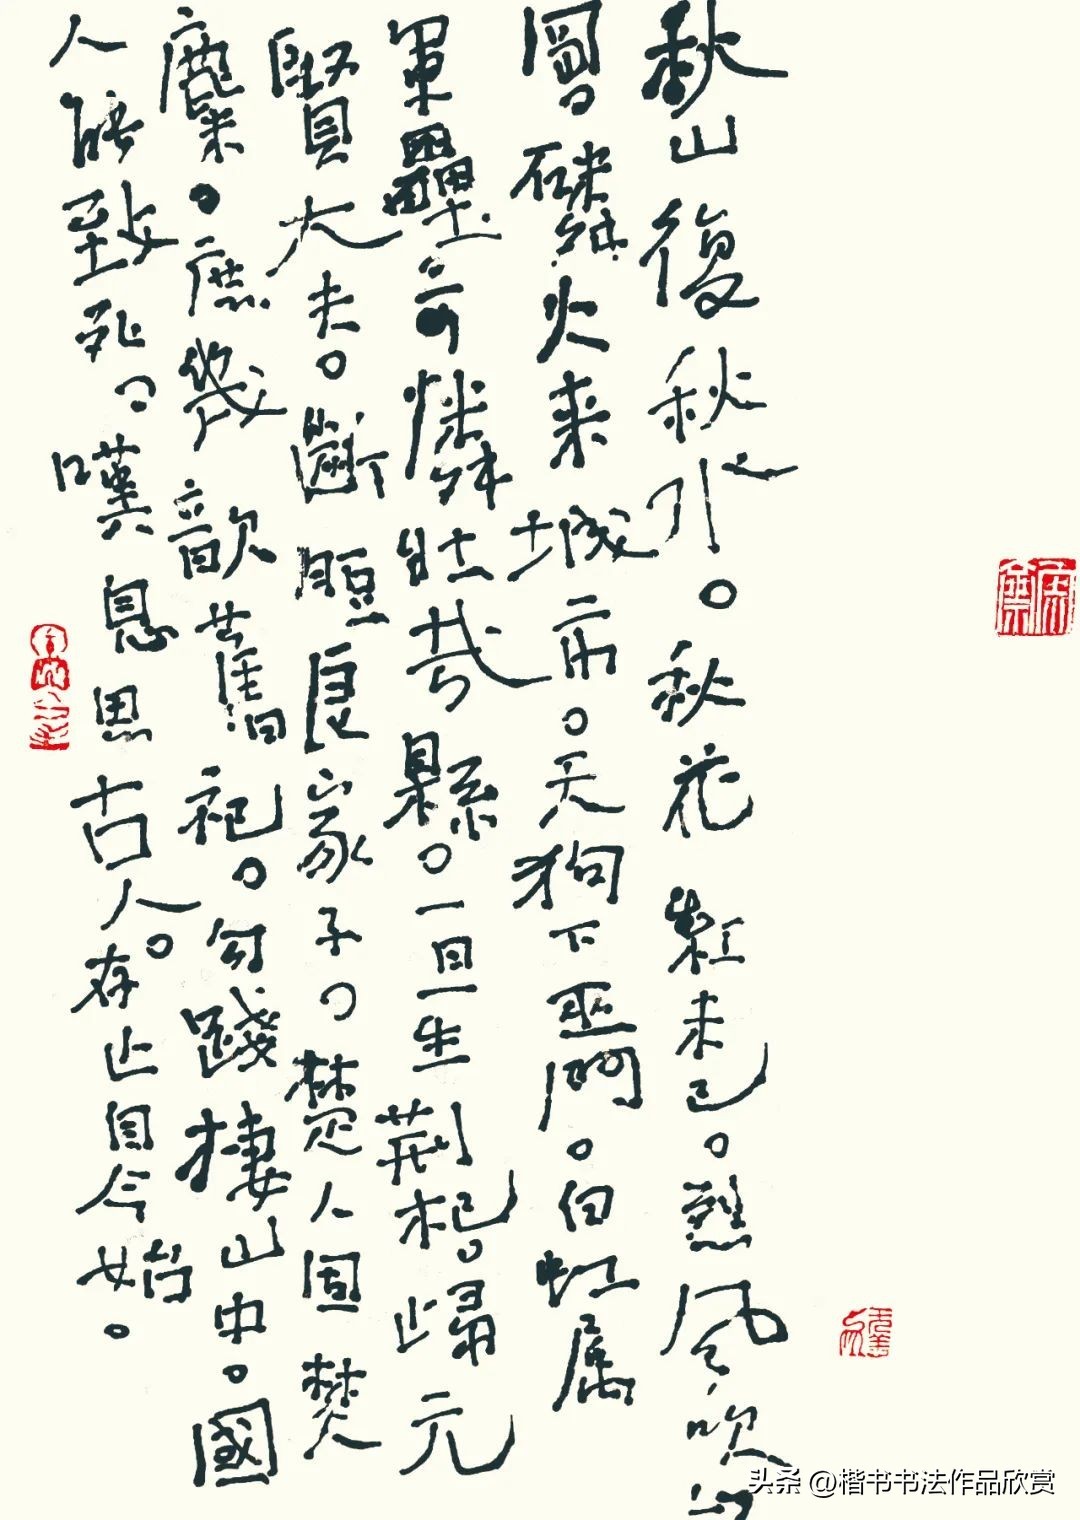 秋山復秋水。秋花紅未已。烈風吹山
岡。磷火来城市。天狗下巫門。白虹属
軍壘可憐壮哉縣。一旦生荆杞。歸元
賢大夫。斷脰良家子。楚人固焚
麇。庶幾歆舊祀。勾踐棲山中。國
人能致死。嘆息思古人。存亡自今始。
头条 @楷书书法作品欣赏